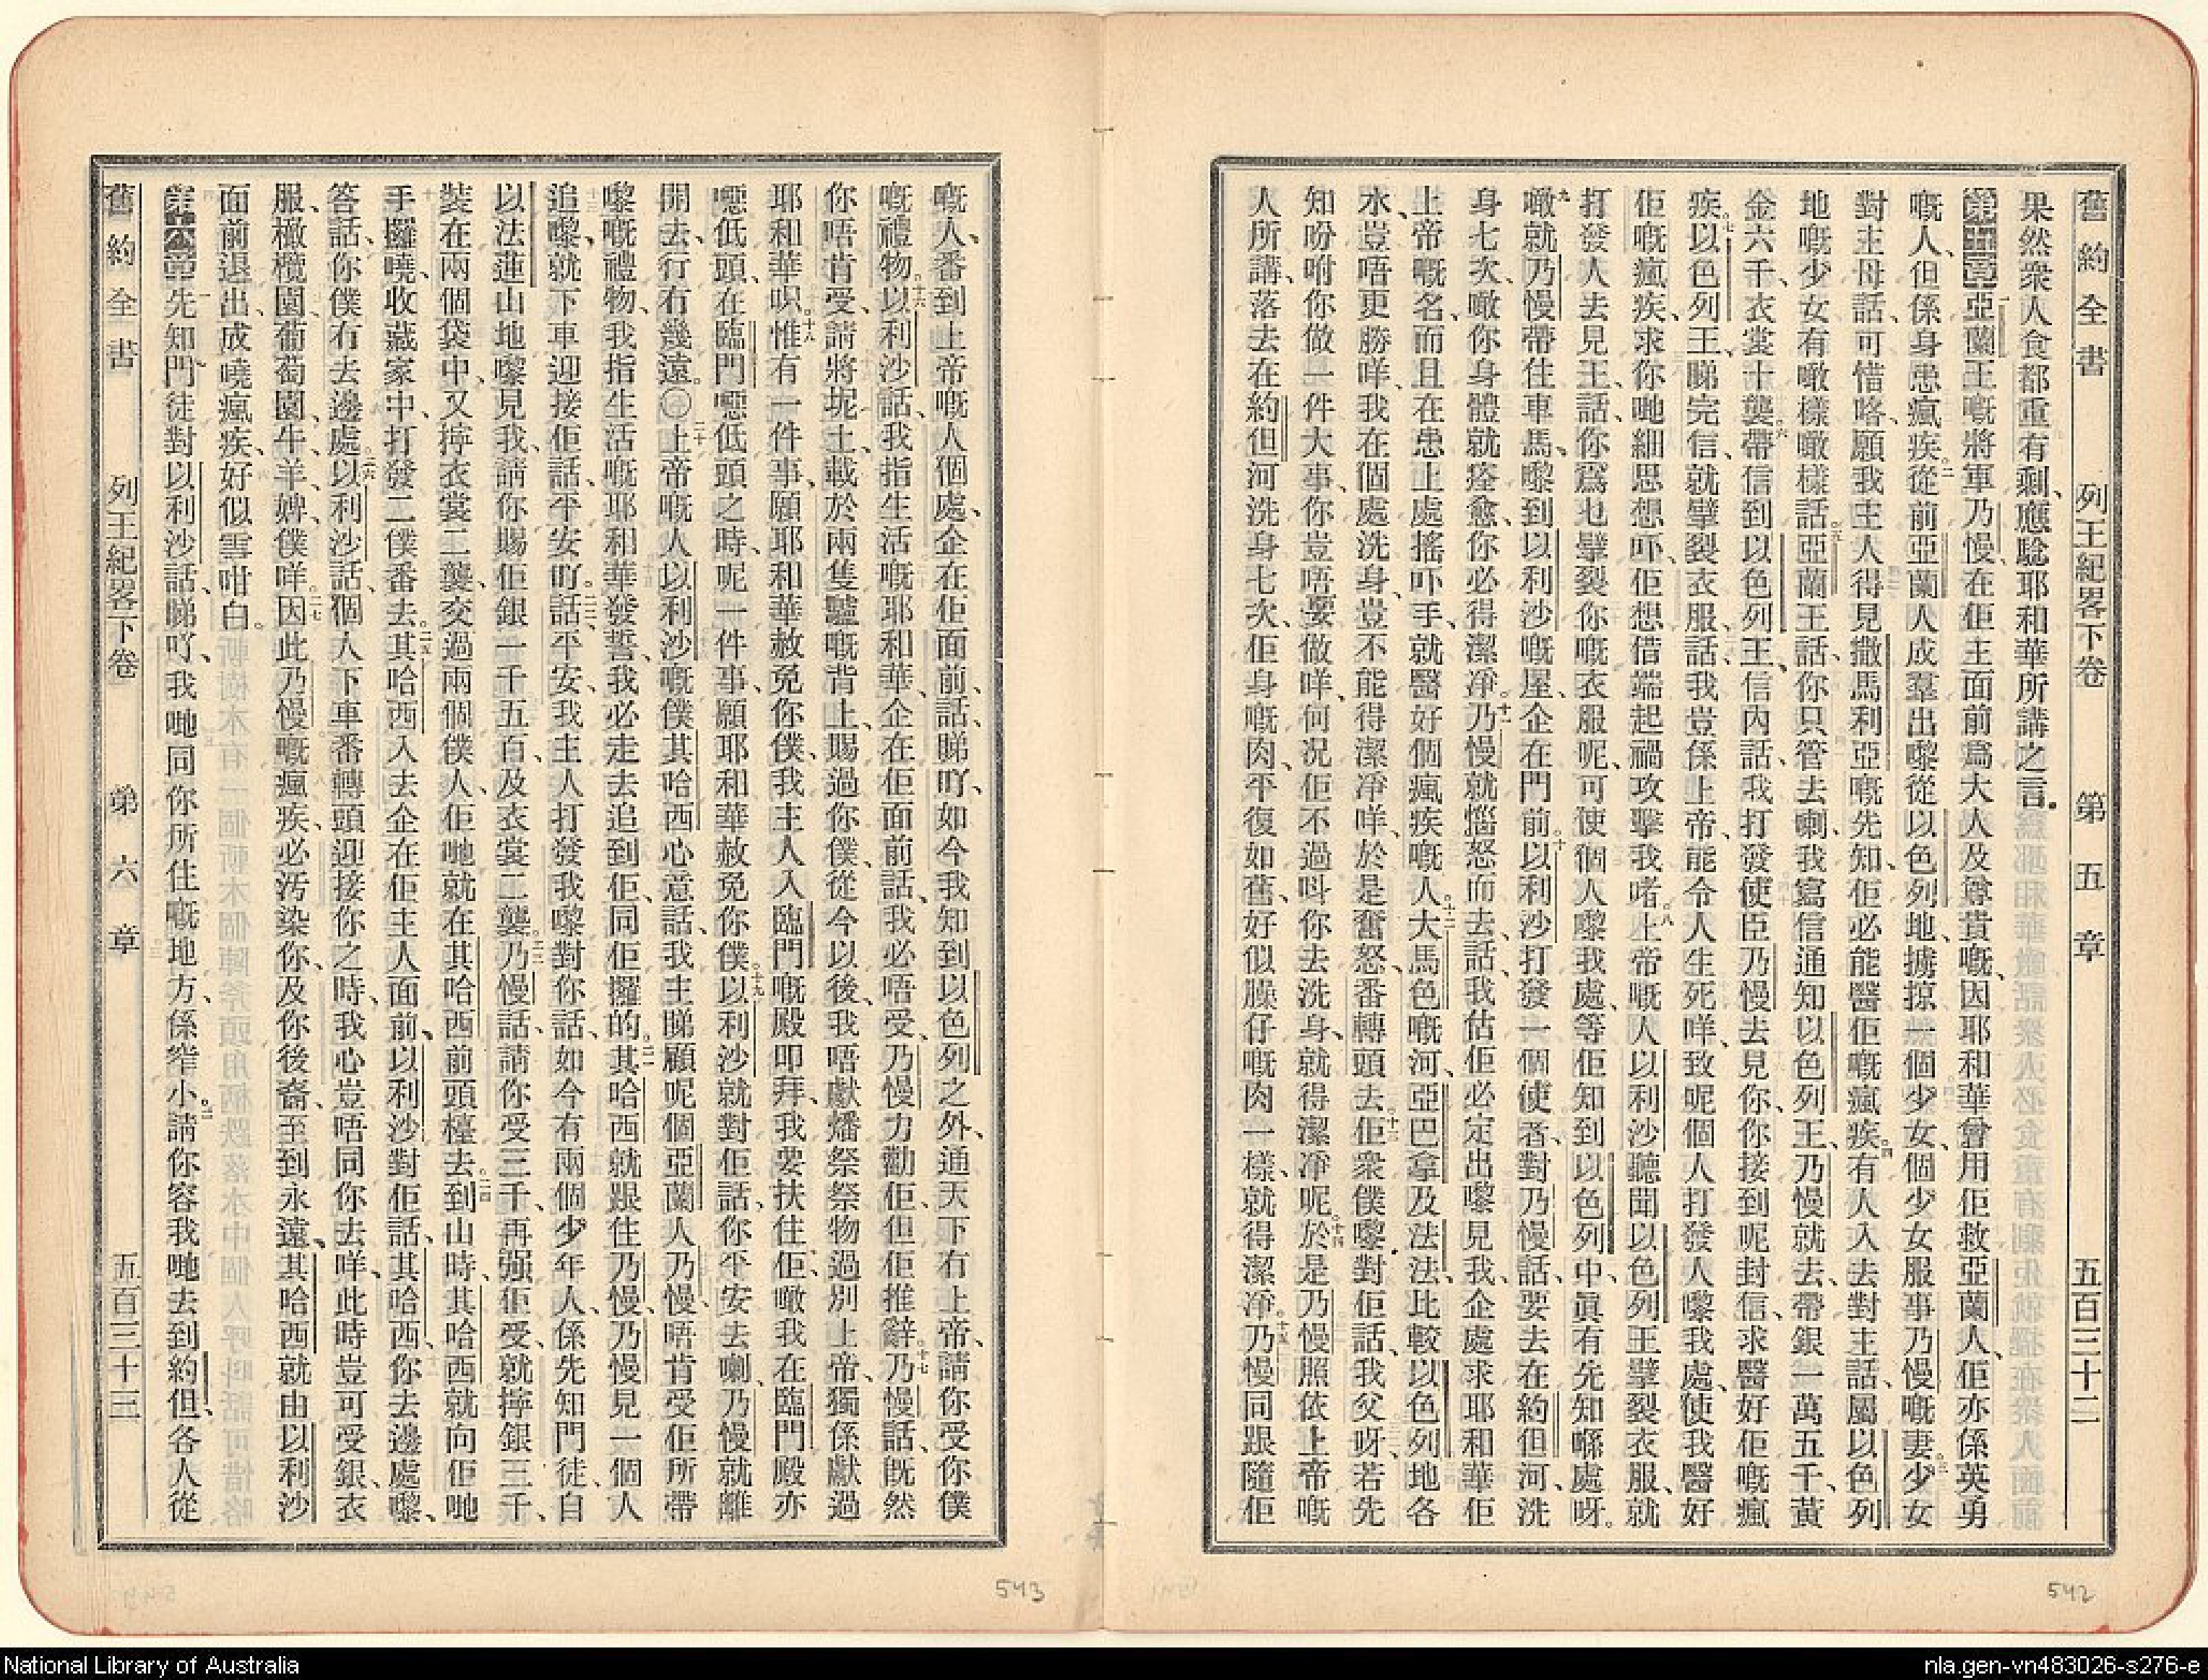 舊約全書　列王紀畧下卷　第五章　五百三十二
果然衆人食都重有剩、應騐耶和華所講之言。
第五章 亞蘭王嘅將軍乃慢、在佢主面前爲大人及尊貴嘅、因耶和華曾用佢救亞蘭人、佢亦係英勇
嘅人、但係身患瘋疾。二從前亞蘭人成羣出嚟、從以色列地、擄掠一個少女、個少女服事乃慢嘅妻。三少女
對主母話、可惜咯、願我主人得見撒馬利亞嘅先知、佢必能醫佢嘅瘋疾。四有人入去對主話、屬以色列
地嘅少女有噉樣噉樣話。五亞蘭王話、你只管去喇、我寫信通知以色列王、乃慢就去、帶銀一萬五千、黃
金六千、衣裳十襲。六帶信到以色列王、信內話、我打發使臣乃慢去見你、你接到呢封信、求醫好佢嘅瘋
疾。七以色列王、睇完信、就擘裂衣服、話、我豈係上帝、能令人生死咩、致呢個人打發人嚟我處、使我醫好
佢嘅瘋疾、求你哋細思想吓、佢想借端起禍攻擊我啫。八上帝嘅人以利沙聽聞以色列王擘裂衣服、就
打發人去見王、話、你爲乜擘裂你嘅衣服呢、可使個人嚟我處、等佢知到以色列中、眞有先知喺處呀。
九噉就乃慢帶住車馬、嚟到以利沙嘅屋、企在門前。十以利沙打發一個使者、對乃慢話、要去在約但河、洗
身七次、噉你身體就痊愈、你必得潔凈。十一乃慢就惱怒而去、話、我估佢必定出嚟見我、企處求耶和華佢
上帝嘅名、而且在患上處搖吓手、就醫好個瘋疾嘅人。十二大馬色嘅河、亞巴拿及法法、比較以色列地各
水、豈唔更勝咩、我在個處洗身、豈不能得潔凈咩、於是奮怒、番轉頭去。十三佢衆僕嚟、對佢話、我父呀、若先
知吩咐你做一件大事、你豈唔要做咩、何况佢不過呌你去洗身、就得潔凈呢。十四於是乃慢照依上帝嘅
人所講、落去在約但河洗身七次、佢身嘅肉、平復如舊、好似臊仔嘅肉一樣、就得潔凈。十五乃慢同跟隨佢
嘅人、番到上帝嘅人個處、企在佢面前、話、睇吖、如今我知到以色列之外、通天下冇上帝、請你受你僕
嘅禮物。十六以利沙話、我指生活嘅耶和華、企在佢面前話、我必唔受、乃慢力勸佢、但佢推辭。十七乃慢話、旣然
你唔肯受、請將坭土、載於兩隻驢嘅背上、賜過你僕、從今以後、我唔獻燔祭祭物過別上帝、獨係獻過
耶和華呮。十八惟有一件事、願耶和華赦免你僕、我主人入臨門嘅殿叩拜、我要扶住佢、噉我在臨門殿亦
嚦低頭、在臨門嚦低頭之時、呢一件事、願耶和華赦免你僕。十九以利沙就對佢話、你平安去喇、乃慢就離
開去、行有幾遠。〇二十上帝嘅人以利沙嘅僕其哈西心意話、我主睇顧呢個亞蘭人乃慢、唔肯受佢所帶
嚟嘅禮物、我指生活嘅耶和華發誓、我必走去追到佢、同佢攞的。二一其哈西就跟住乃慢、乃慢見一個人
追嚟、就下車迎接佢、話、平安吖。二二話、平安、我主人打發我嚟對你話、如今有兩個少年人、係先知門徒、自
以法蓮山地嚟見我、請你賜佢銀一千五百、及衣裳二襲。二三乃慢話、請你受三千、再强佢受、就擰銀三千、
裝在兩個袋中、又擰衣裳二襲、交過兩個僕人、佢哋就在其哈西前頭檯去。二四到山時、其哈西就向佢哋
手攞嘵、收藏家中、打發二僕番去。二五其哈西入去企在佢主人面前、以利沙對佢話、其哈西、你去邊處嚟、
答話、你僕冇去邊處。二六以利沙話、個人下車番轉頭迎接你之時、我心豈唔同你去咩、此時豈可受銀、衣
服、橄欖園、葡萄園、牛、羊、婢、僕咩。二七因此乃慢嘅瘋疾、必汚染你、及你後裔、至到永遠、其哈西就由以利沙
面前退出、成嘵瘋疾、好似雪咁白。
第六章 一先知門徒對以利沙話、睇吖、我哋同你所住嘅地方、係窄小。二請你容我哋去到約但、各人從
舊約全書　列王紀畧下卷　第六章　五百三十三
543
542
National Library of Australia
nla.gen-vn483026-s276-e